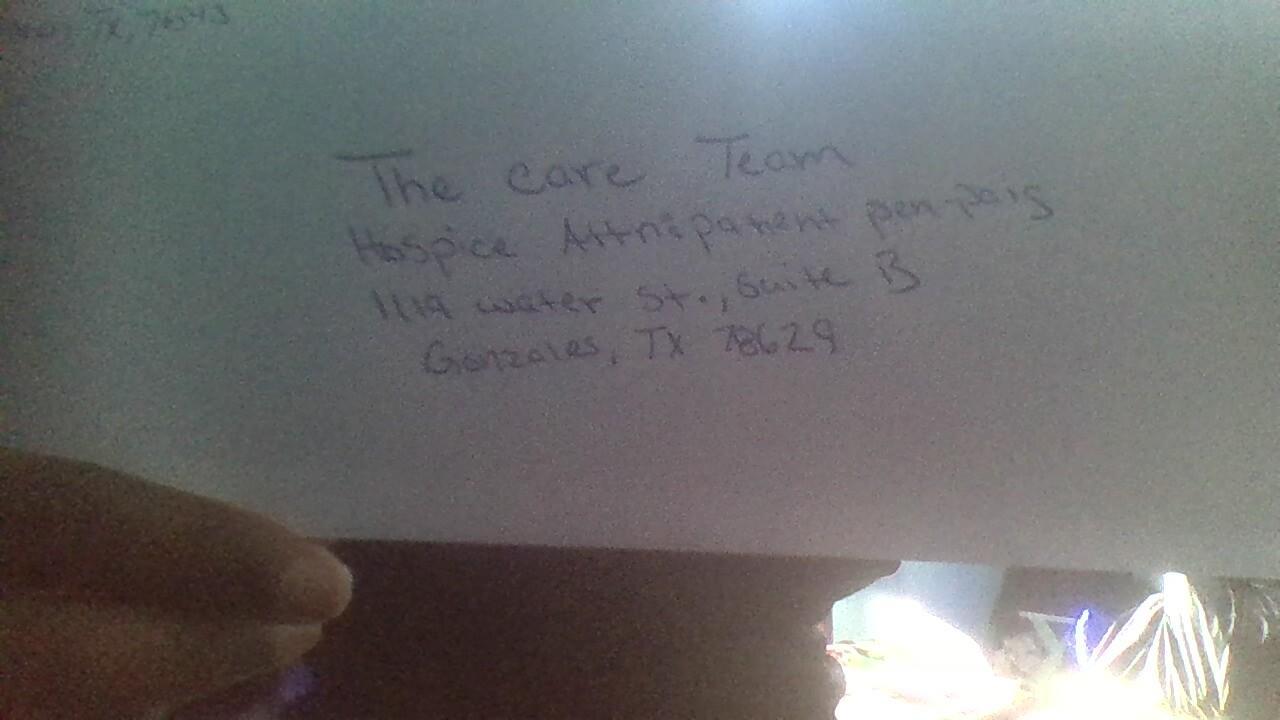 TX,
The Care Team
Hospice Attn: patient pen-pals
1119 water St., Suite B
Gonzales, TX 78629